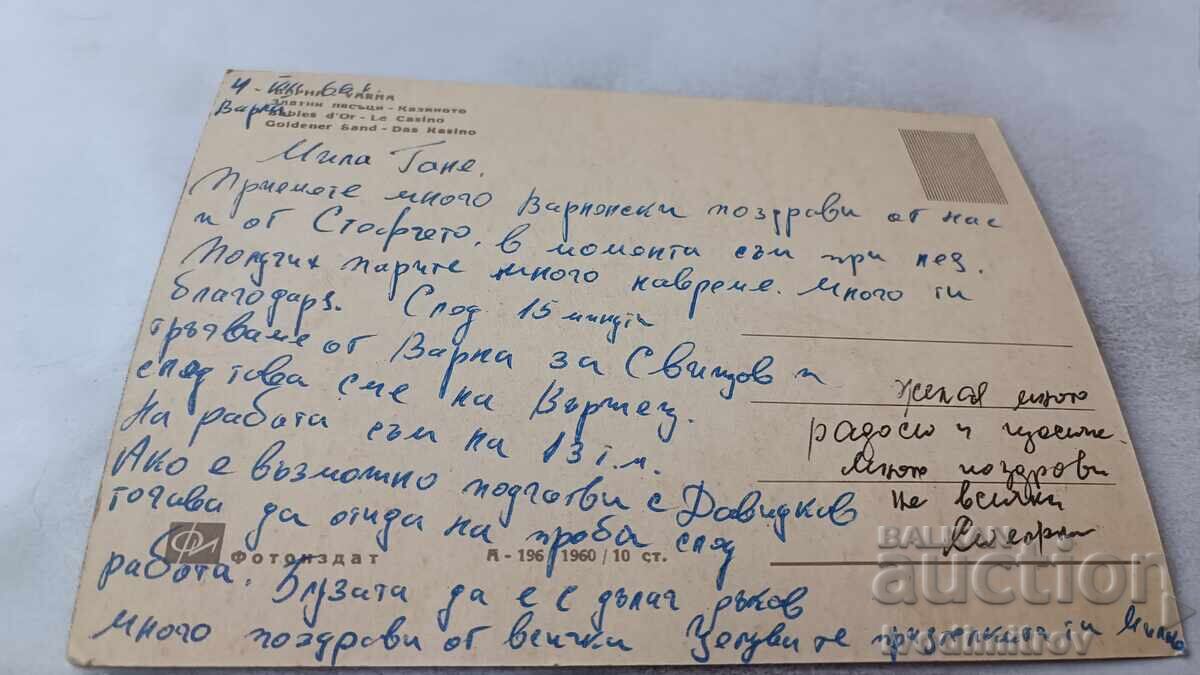 Варна
VARNA
Златни пясъци - Казиното
Sables d'Or - Le Casino
Goldener Sand - Das Kasino
Мила Гане,
Приемете много Варненски поздрави от нас
и от Старчето, в момента съм при нея.
Получих парите много навреме. Много ти
благодаря. След 15 минути
тръгваме от Варна за Свищов и
след това сме на Вършец.
На работа съм на 13 т.м.
Ако е възможно подготви с Давидков
тогава да отида на проба след
работа. Блузата да е с дълаг ръков
много поздрави от всички Целува те приятелката ти
желая много
радост и щастие.
Много поздрави
на всички
Фотоиздат
А-196 1960/10 ст.
BALKAN
auction
ivodimitrov